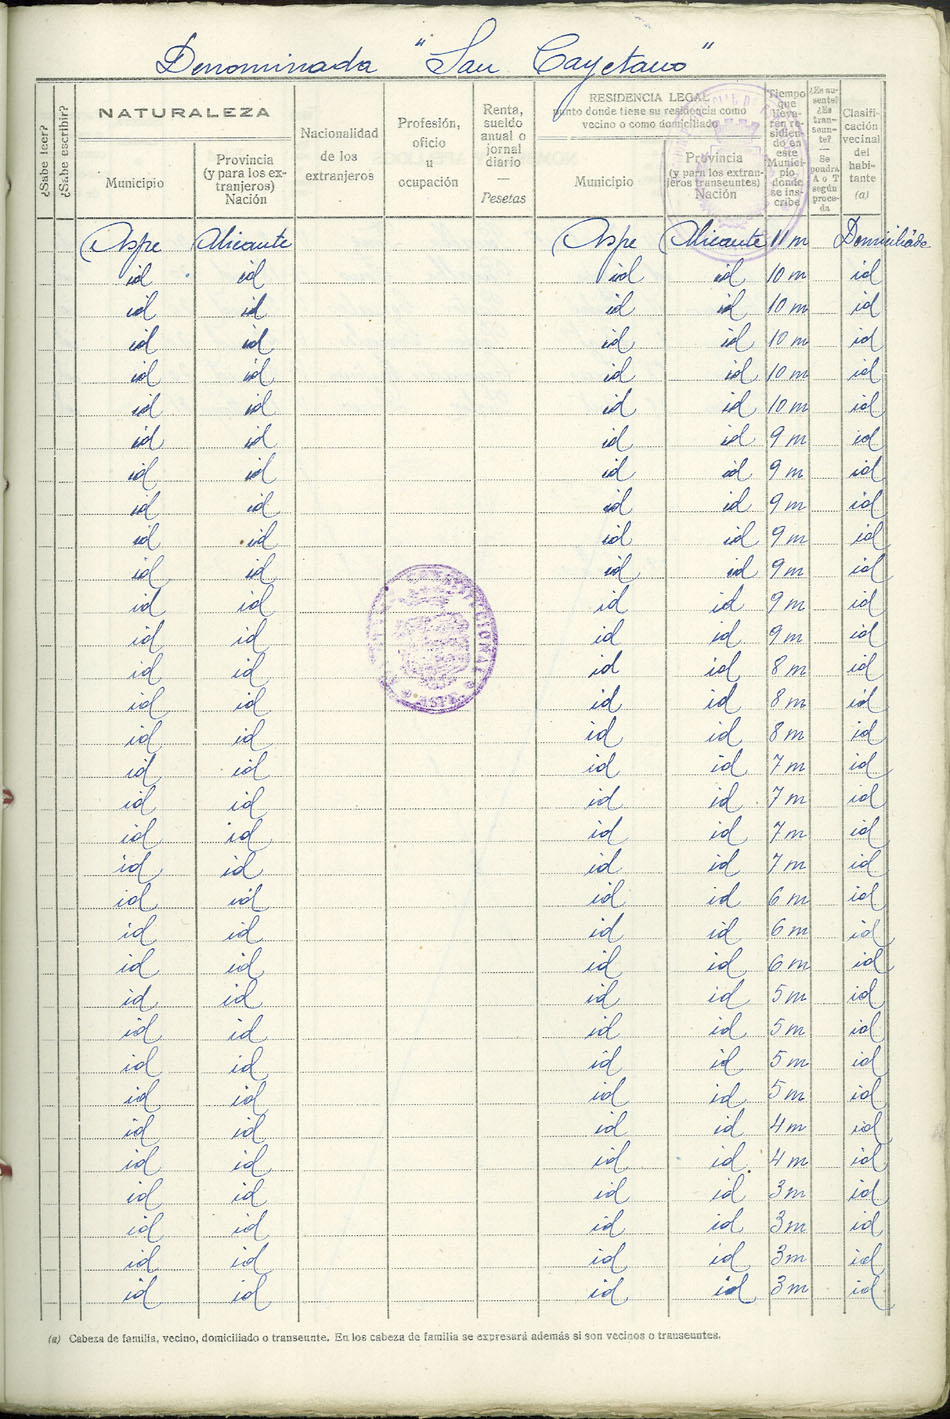 Denominada "San Cayetano"
¿Sabe leer?
¿Sabe escribir?
NATURALEZA
Municipio
Provincia (y para los extranjeros) Nación
Nacionalidad de los extranjeros
Profesión, oficio u ocupación
Renta, sueldo anual o jornal diario — Pesetas
RESIDENCIA LEGAL punto donde tiene su residencia como vecino o como domiciliado
Municipio
Provincia (y para los extranjeros transeuntes) Nación
Tiempo que lleva ren residiendo en este Municipio donde se inscribe
¿Es ausente? ¿Es transeunte? — Se pondrá A o T según proceda
Clasificación vecinal del habitante (a)
Aspe Alicante Aspe Alicante 11 m Domiciliado
id id id id 10 m id
id id id id 10 m id
id id id id 10 m id
id id id id 10 m id
id id id id 10 m id
id id id id 9 m id
id id id id 9 m id
id id id id 9 m id
id id id id 9 m id
id id id id 9 m id
id id id id 9 m id
id id id id 9 m id
id id id id 8 m id
id id id id 8 m id
id id id id 8 m id
id id id id 7 m id
id id id id 7 m id
id id id id 7 m id
id id id id 7 m id
id id id id 6 m id
id id id id 6 m id
id id id id 6 m id
id id id id 5 m id
id id id id 5 m id
id id id id 5 m id
id id id id 5 m id
id id id id 4 m id
id id id id 4 m id
id id id id 3 m id
id id id id 3 m id
id id id id 3 m id
id id id id 3 m id
(a) Cabeza de familia, vecino, domiciliado o transeunte. En los cabeza de familia se expresará además si son vecinos o transeuntes.